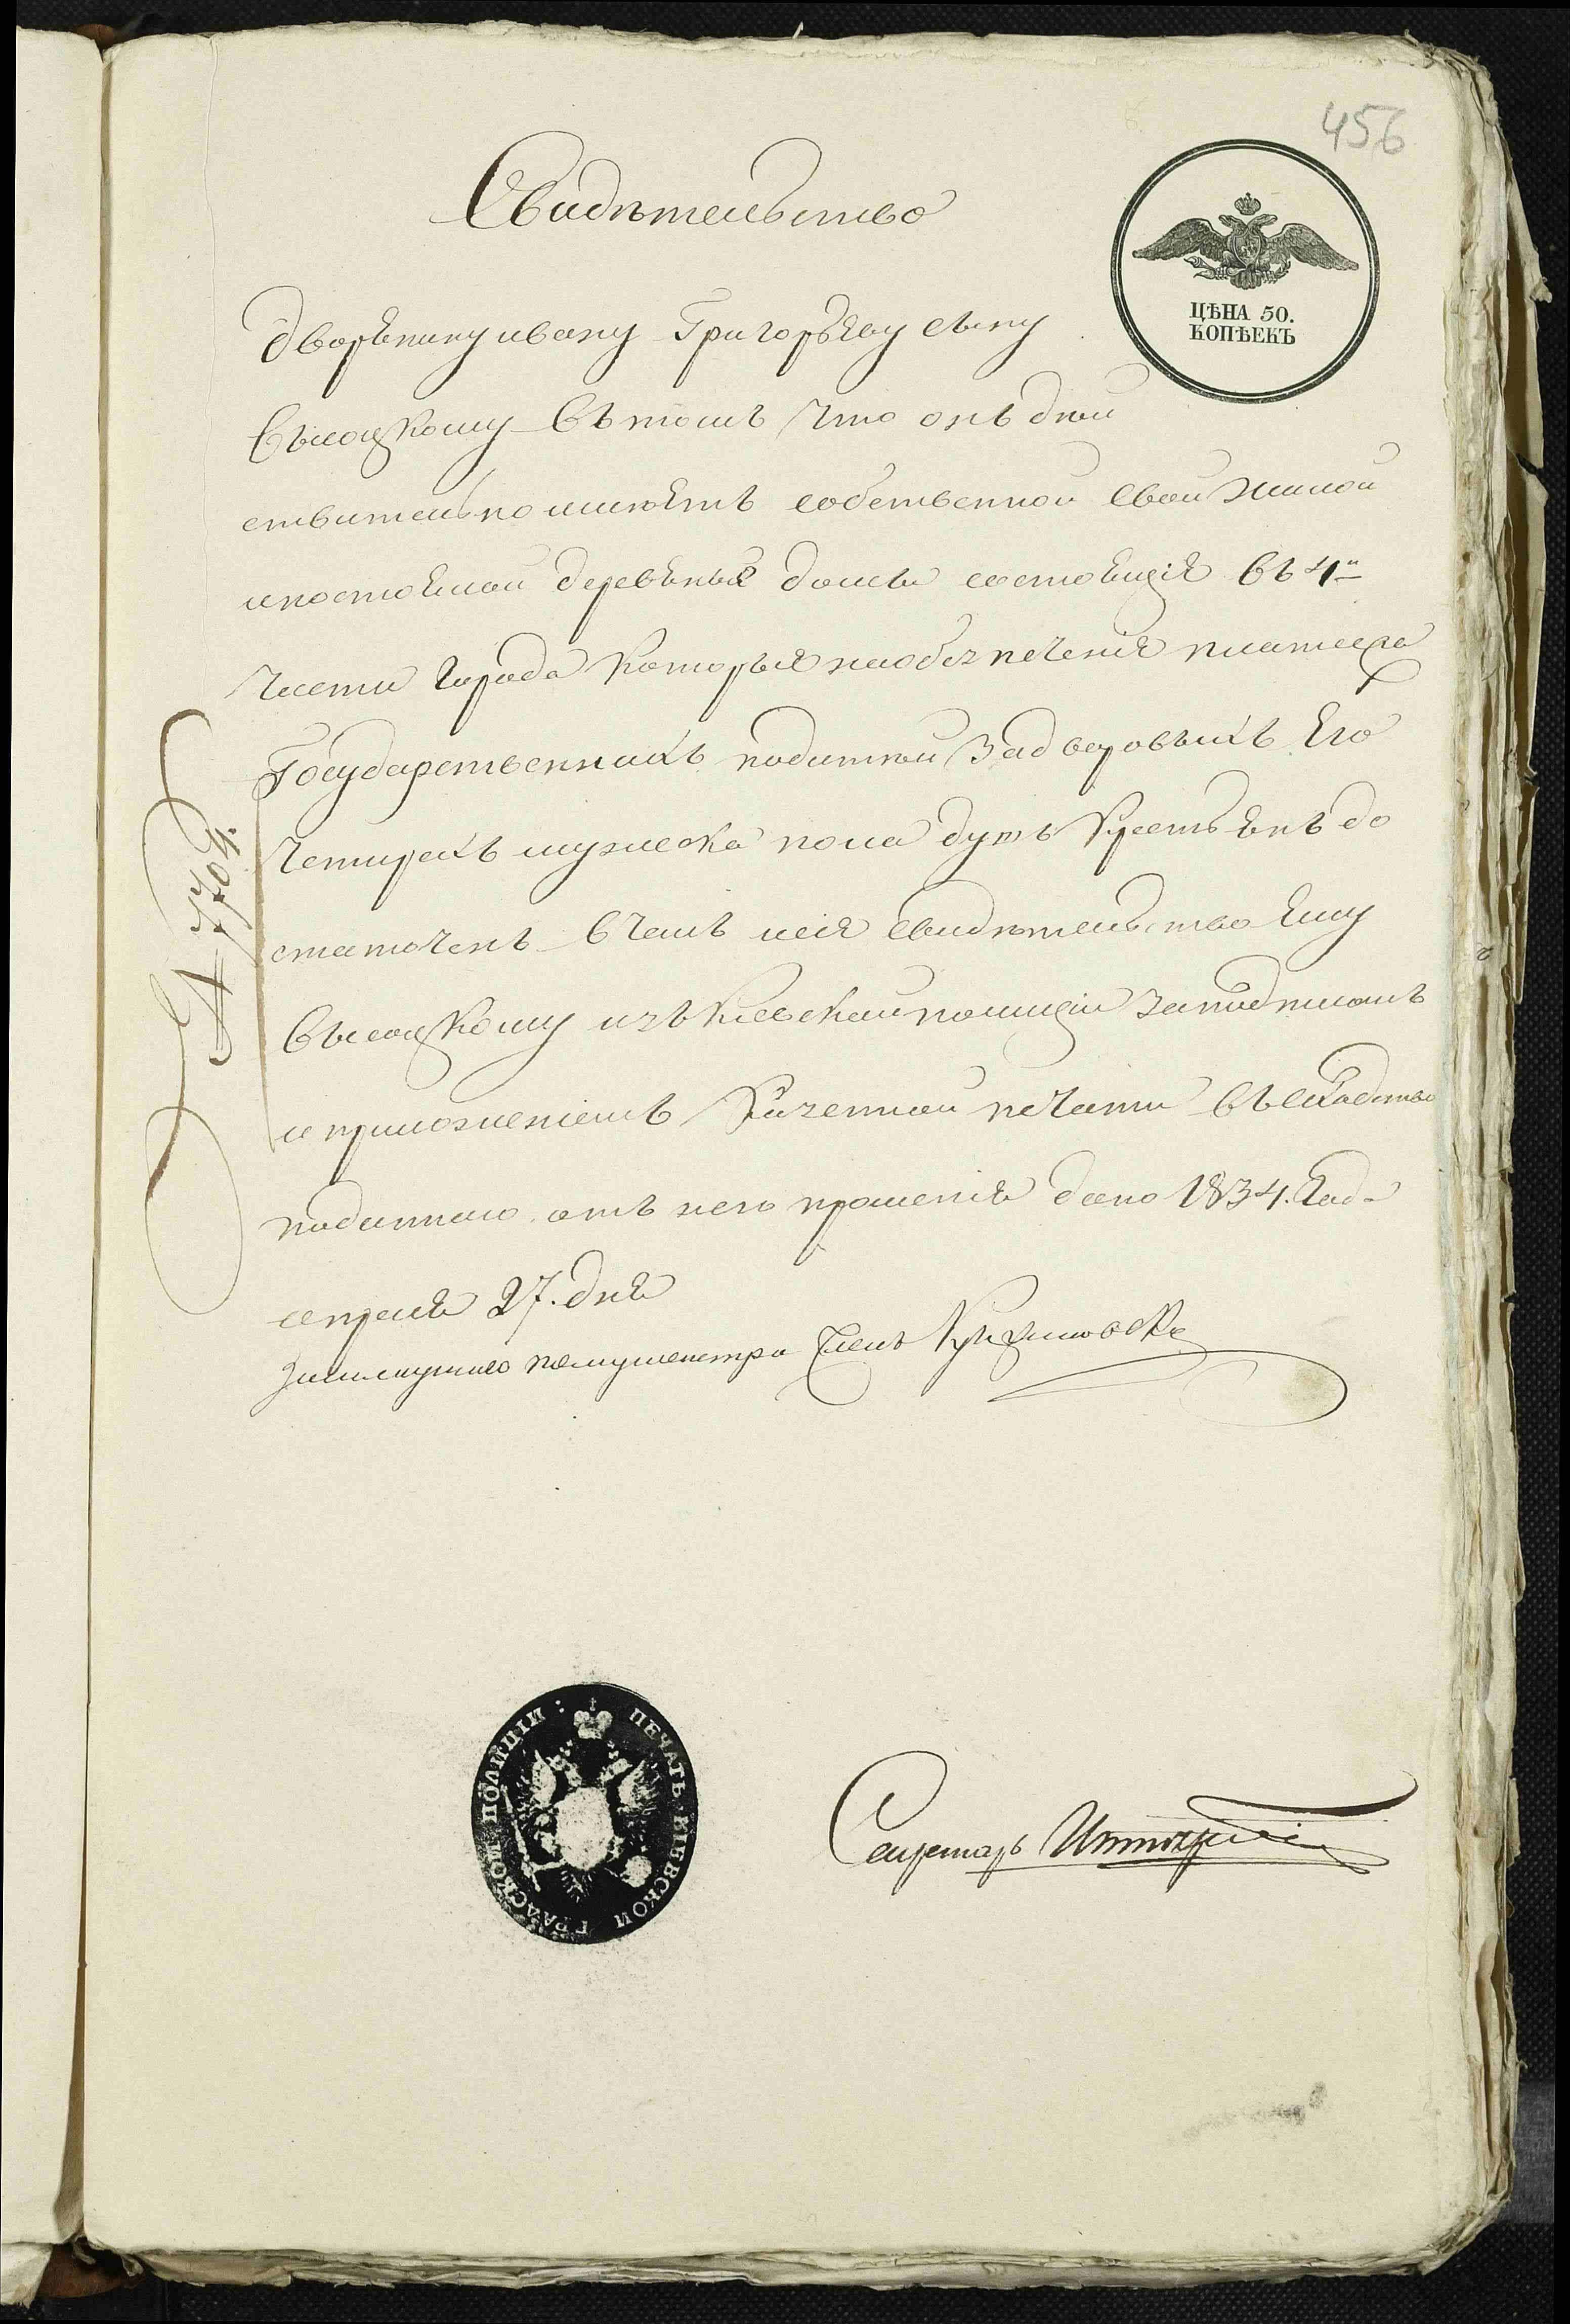 456
Свидѣтельство
ЦѢНА 50.
КОПѢЕКЪ
дворянину ивану Григорьеву сыну
высоцкому въ томъ что онъ дѣй
ствительно имѣетъ собственной свой жилой
деревяный домъ состоящiя въ 4й
части города которыя наобезпеченiя платежа
Государственныхъ податей за дворовыхъ Его
четирехъ мужеска пола душъ крестьянъ до
статоченъ в чемъ сiя свидѣтельство Ему
высоцкому изъ Киевской полицiи заподписомъ
и приложенiемъ Казенной печати въ слѣдствие
поданнаго отъ него прошенiя дано 1834. года
апреля 27. дня
полицмейстера Членъ
№ 7704.
Секретарь
ПЕЧАТЬ КIЕВСКОЙ ГРАДСКОЙ ПОЛИЦIИ: